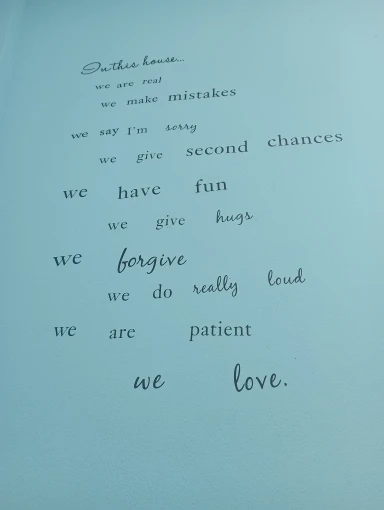 In this house...
we are real
we make mistakes
we say I'm sorry
we give second chances
we have fun
we give hugs
we forgive
we do really loud
we are patient
we love.